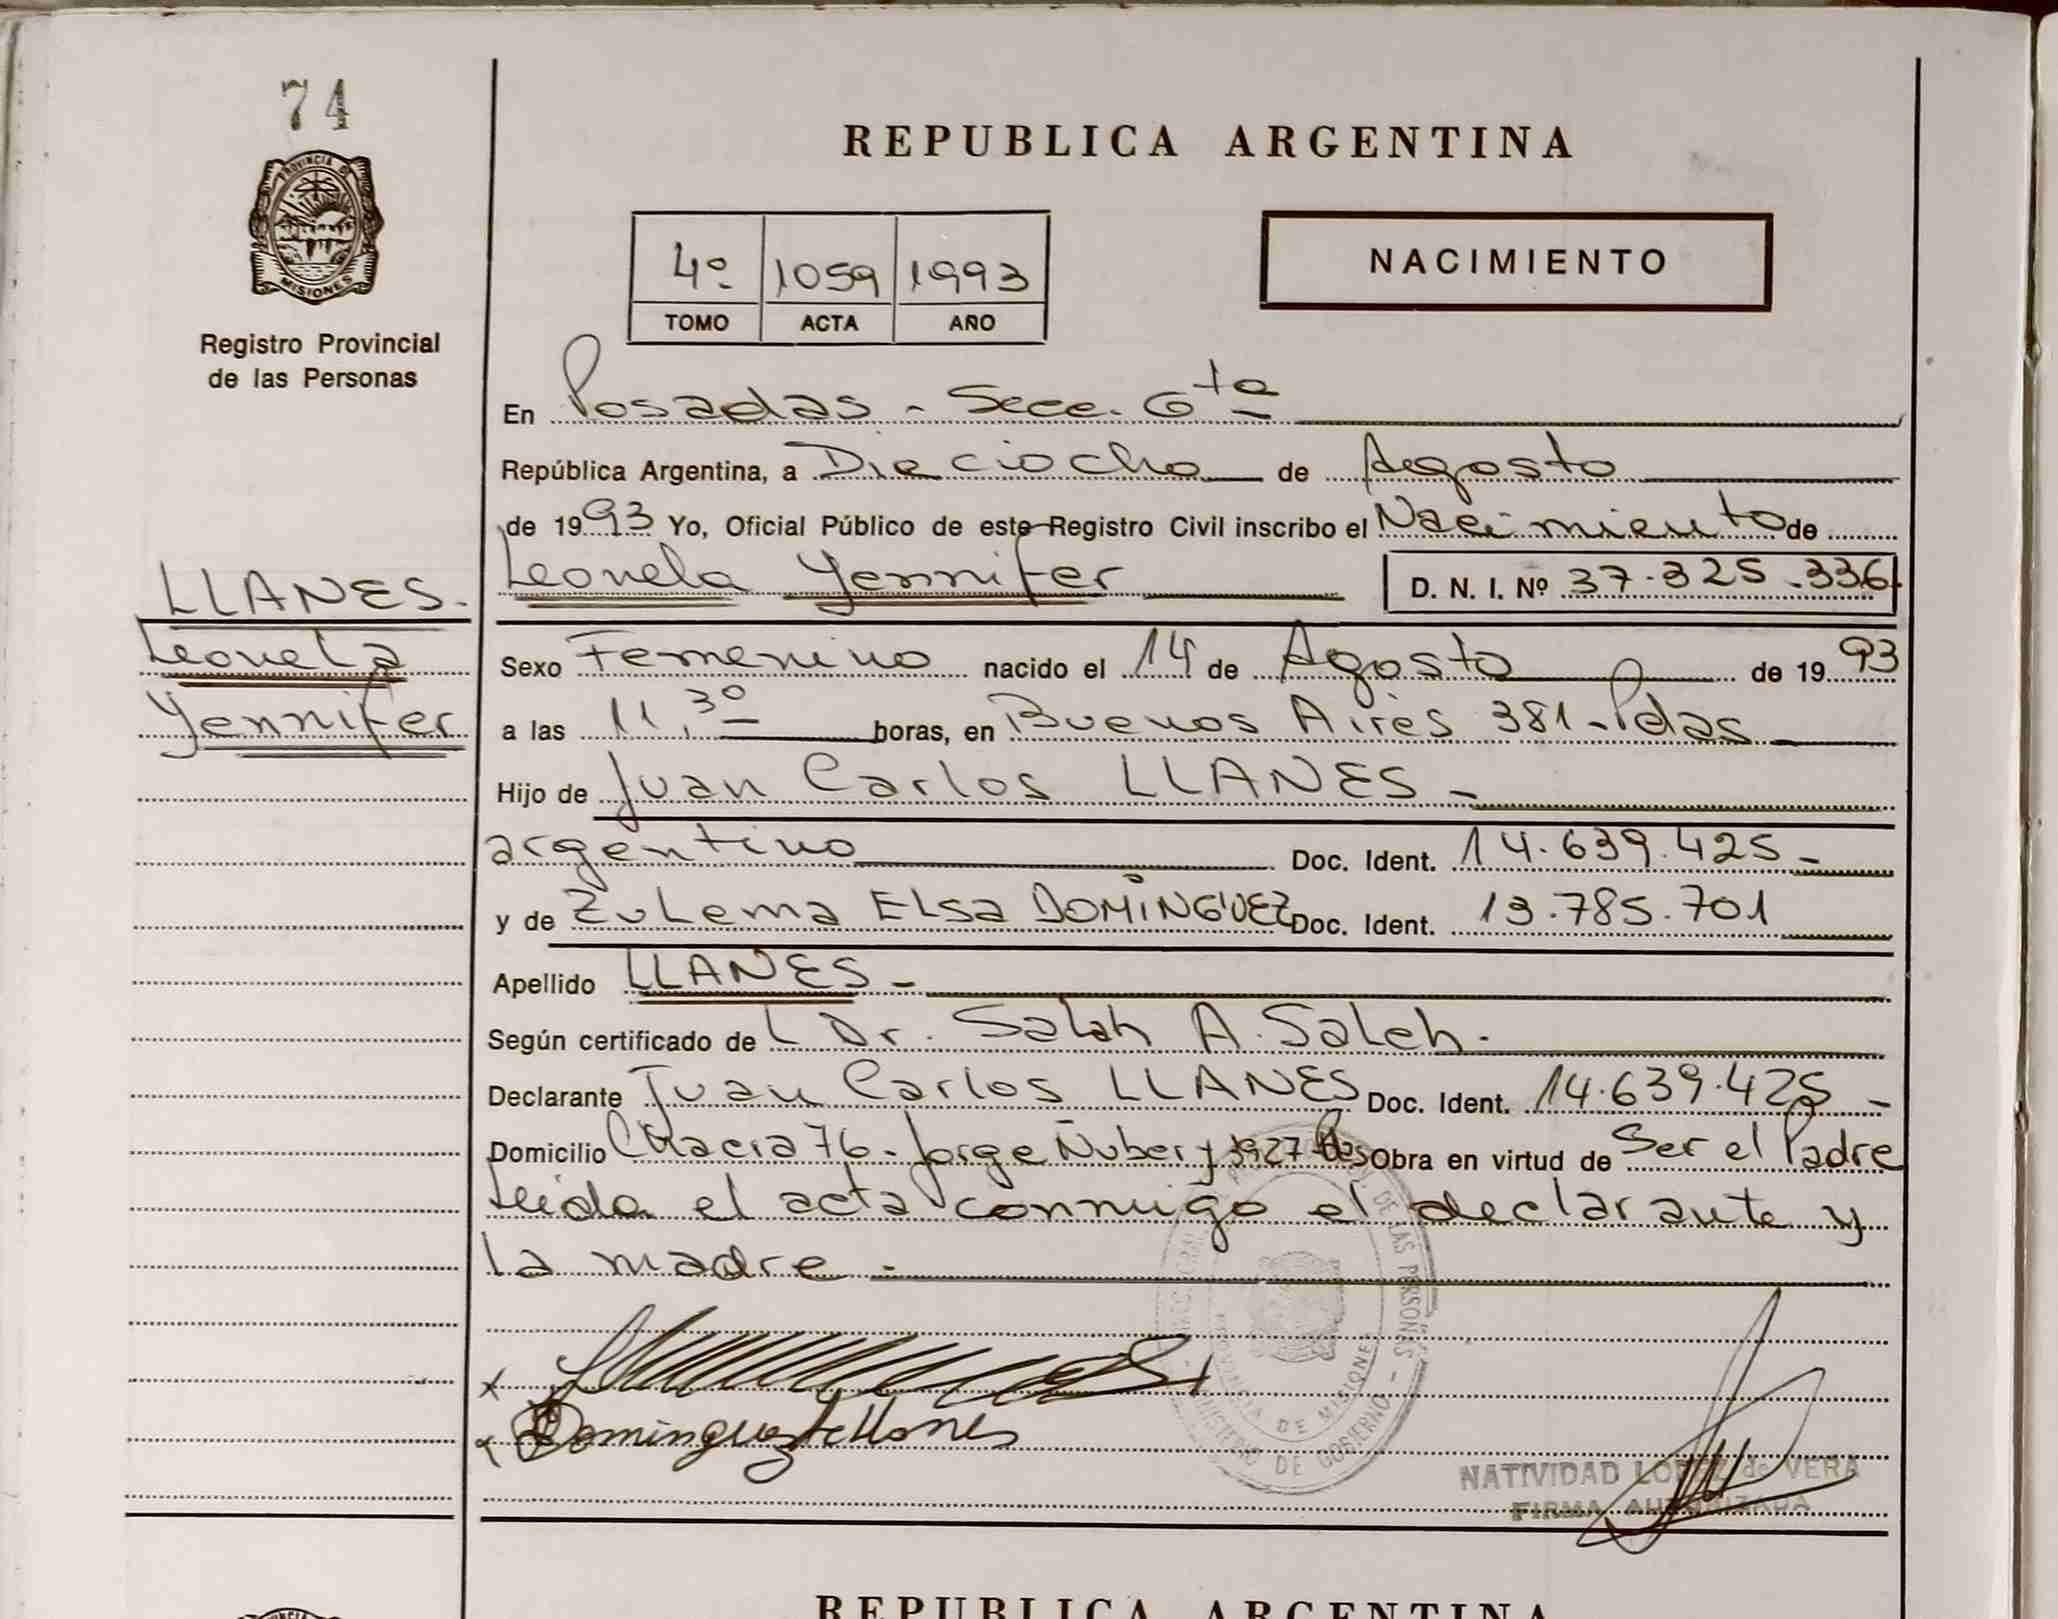 74
PROVINCIA DE
MISIONES
Registro Provincial
de las Personas
LLANES.
Leonela
Yennifer
REPUBLICA ARGENTINA
4º 1059 1993
TOMO ACTA AÑO
NACIMIENTO
En Posadas - Secc. 6ta
República Argentina, a Dieciocho de Agosto
de 1993 Yo, Oficial Público de este Registro Civil inscribo el Nacimiento de
Leonela Yennifer D. N. I. Nº 37.325.336
Sexo Femenino nacido el 14 de Agosto de 1993
a las 11,30 horas, en Buenos Aires 381 - Pdas
Hijo de Juan Carlos LLANES -
argentino Doc. Ident. 14.639.425 -
y de Zulema Elsa DOMINGUEZ Doc. Ident. 13.785.701
Apellido LLANES -
Según certificado de L Dr. Salah A. Saleh.
Declarante Juan Carlos LLANES Doc. Ident. 14.639.425 -
Domicilio Chacra 76 - Jorge Ñubery 3927 Obra en virtud de Ser el Padre
Leida el acta conmigo el declarante y
la madre -
DE LAS PERSONAS
MINISTERIO DE GOBIERNO
PROVINCIA DE MISIONES
Dominguez de Llanes
NATIVIDAD LOPEZ de VERA
FIRMA AUTORIZADA
REPUBLICA ARGENTINA